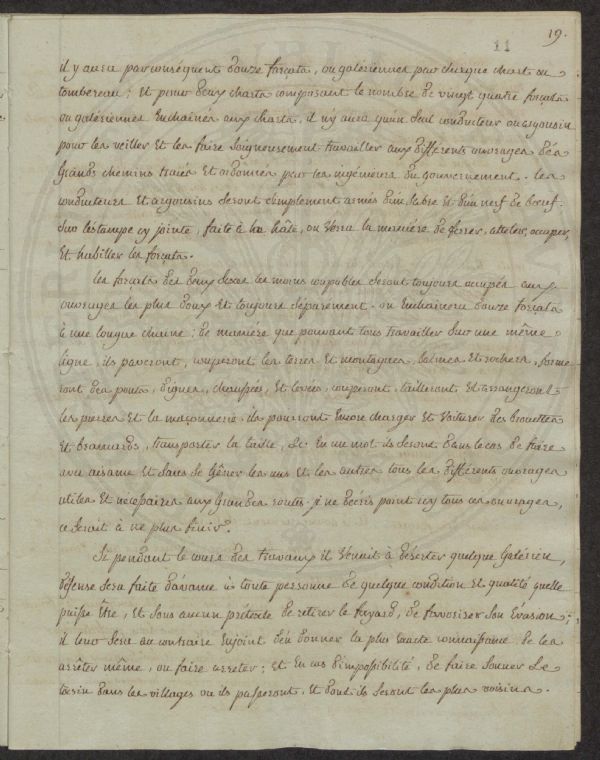 19.
11
il y aura par conséquent douze forçats, ou galériennes par chaque chart ou
tombereau; et pour deux charts composant le nombre de vingt quatre forçats
ou galériennes enchainés aux charts, il n'y aura qu'un seul conducteur ou argousin
pour les veiller et les faire soigneusement travailler aux différents ouvrages des
grands chemins tracés et ordonnés par les ingénieurs du gouvernement. Les
conducteurs et argousins seront simplement armés d'un sabre et d'un nerf de boeuf.
Sur l'éstampe cy jointe, faite à la hâte, on verra la manière de ferrer, atteler, occuper,
et habiller les forçats.
Les forçats des deux sexes les moins coupables seront toujours occupés aux
ouvrages les plus doux et toujours séparement. on enchainera douze forçats
à une longue chaine; de manière que pouvant tous travailler sur une même
ligne, ils paveront, couperont les terres et montagnes, balmes et rochers, forme
ront des ponts, digues, chaussées, et levées, couperont, tailleront et arrangeront
les pierres et la maçonnerie. ils pourront encore charger et voiturer des brouettes
et brancards, transporter la taille, &c. En un mot ils seront dans le cas de faire
avec aisance et sans se gêner les uns et les autres tous les différents ouvrages
utiles et nécessaires aux grandes routes. je ne décris point icy tous ces ouvrages,
ce serait à ne plus finir.
Si pendant le cours des travaux il venait à déserter quelque Galérien,
défense sera faite d'avance à toute personne de quelque condition et qualité quelle
puisse être, et sous aucun prétexte de retirer le fuyard, de favoriser son évasion;
il leur sera au contraire enjoint d'en donner la plus exacte connaissance de les
arrêter même, ou faire arreter; et en cas d'impossibilité, de faire sonner le
tocsin dans les villages ou ils passeront, et dont ils seront les plus voisins.